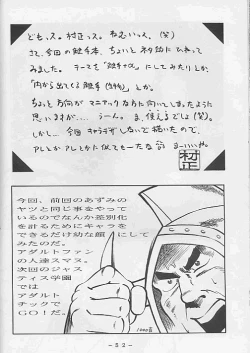 どもっス。村正っス。
さて、今回の触手本、ちょいとネタ的に
みました。テーマを「触手っ」にしてみたりとか
「内から出てくる触手(生物)」とか。
ちょっと方向がマニアックな方に向いてしまったように
思いますが‥‥。うーん。ま、使えるでしょ(笑)。
しかし‥今回キャラデザしないで描いたので、
アレとかアレとかに似てもーたな
村正
今回、前回のあずみの
ヤツと同じ事をやって
いるのでなんか差別化
を計るためにキャラを
できるだけ幼な顔にして
みたのだ。
アダルトファン
の人達スマヌ。
次回のジャス
ティス学園
では
アダルト
チックで
GO!だ。
-52-